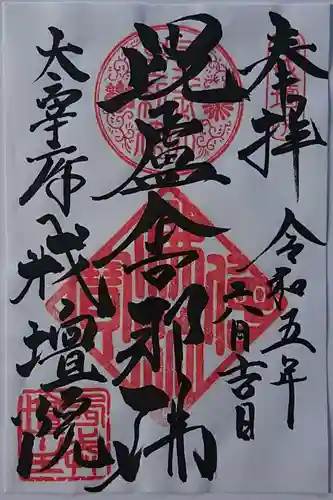 奉拝
令和五年
六月吉日
毘盧舎那佛
大宰府戒壇院